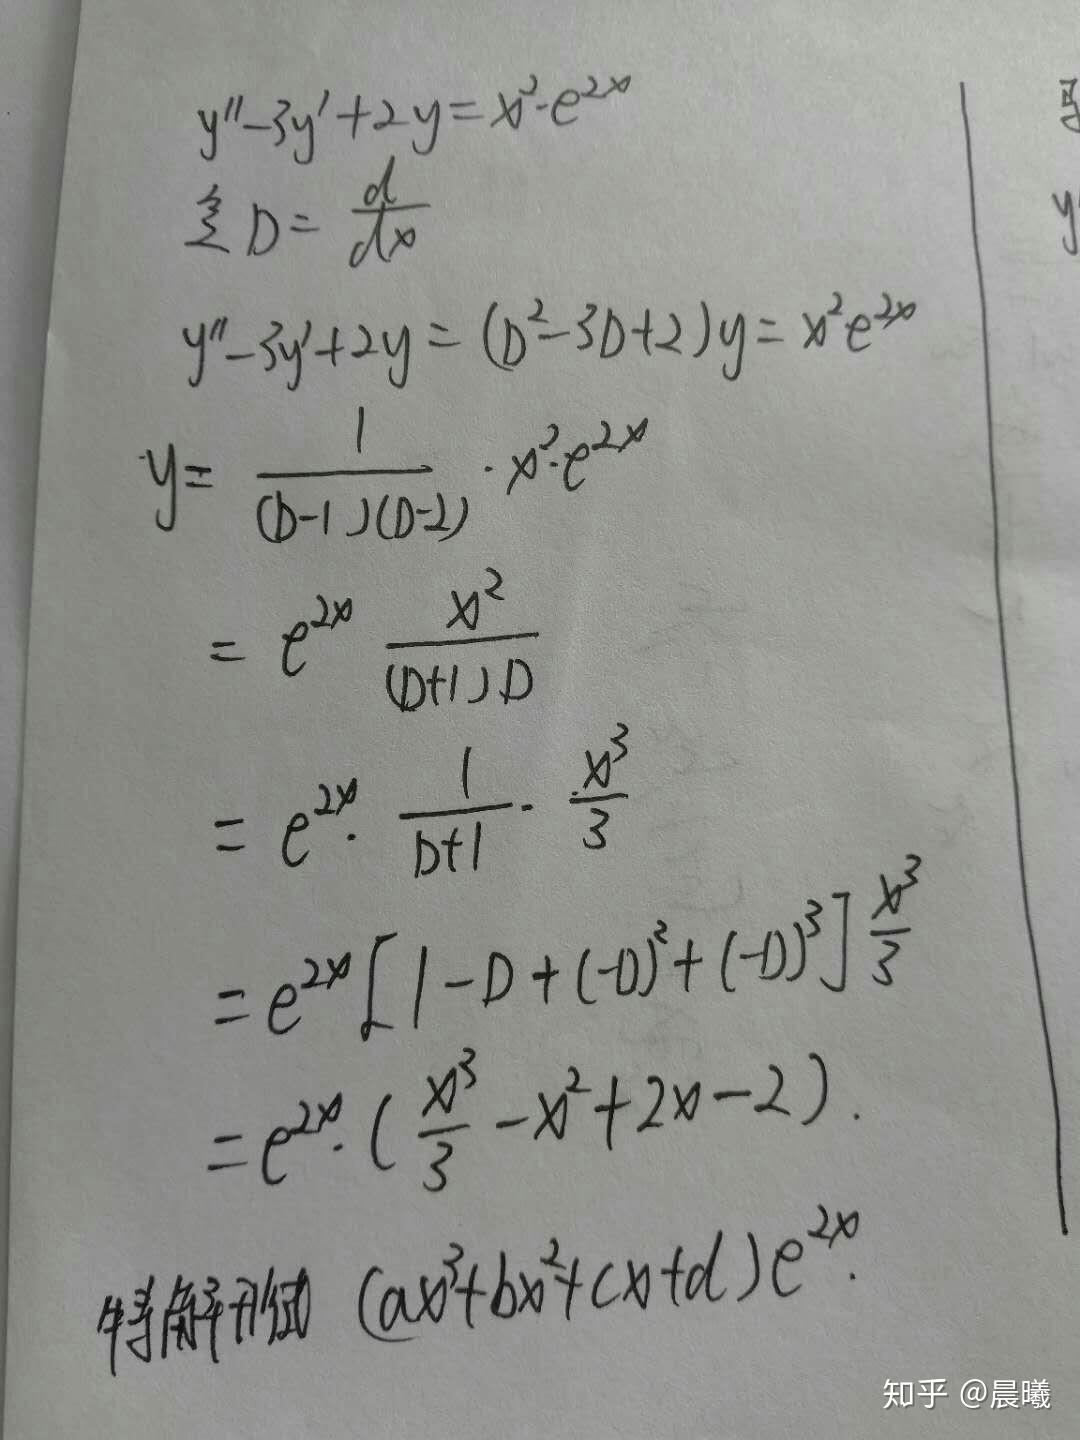 y''-3y'+2y=x²·e^{2x}
令 D=\frac{d}{dx}
y''-3y'+2y=(D²-3D+2)y=x²e^{2x}
y=\frac{1}{(D-1)(D-2)}·x²·e^{2x}
=e^{2x}\frac{x²}{(D+1)D}
=e^{2x}·\frac{1}{D+1}·\frac{x³}{3}
=e^{2x}[1-D+(-D)²+(-D)³]\frac{x³}{3}
=e^{2x}·(\frac{x³}{3}-x²+2x-2).
特解形式 (ax³+bx²+cx+d)e^{2x}.
知乎 @晨曦